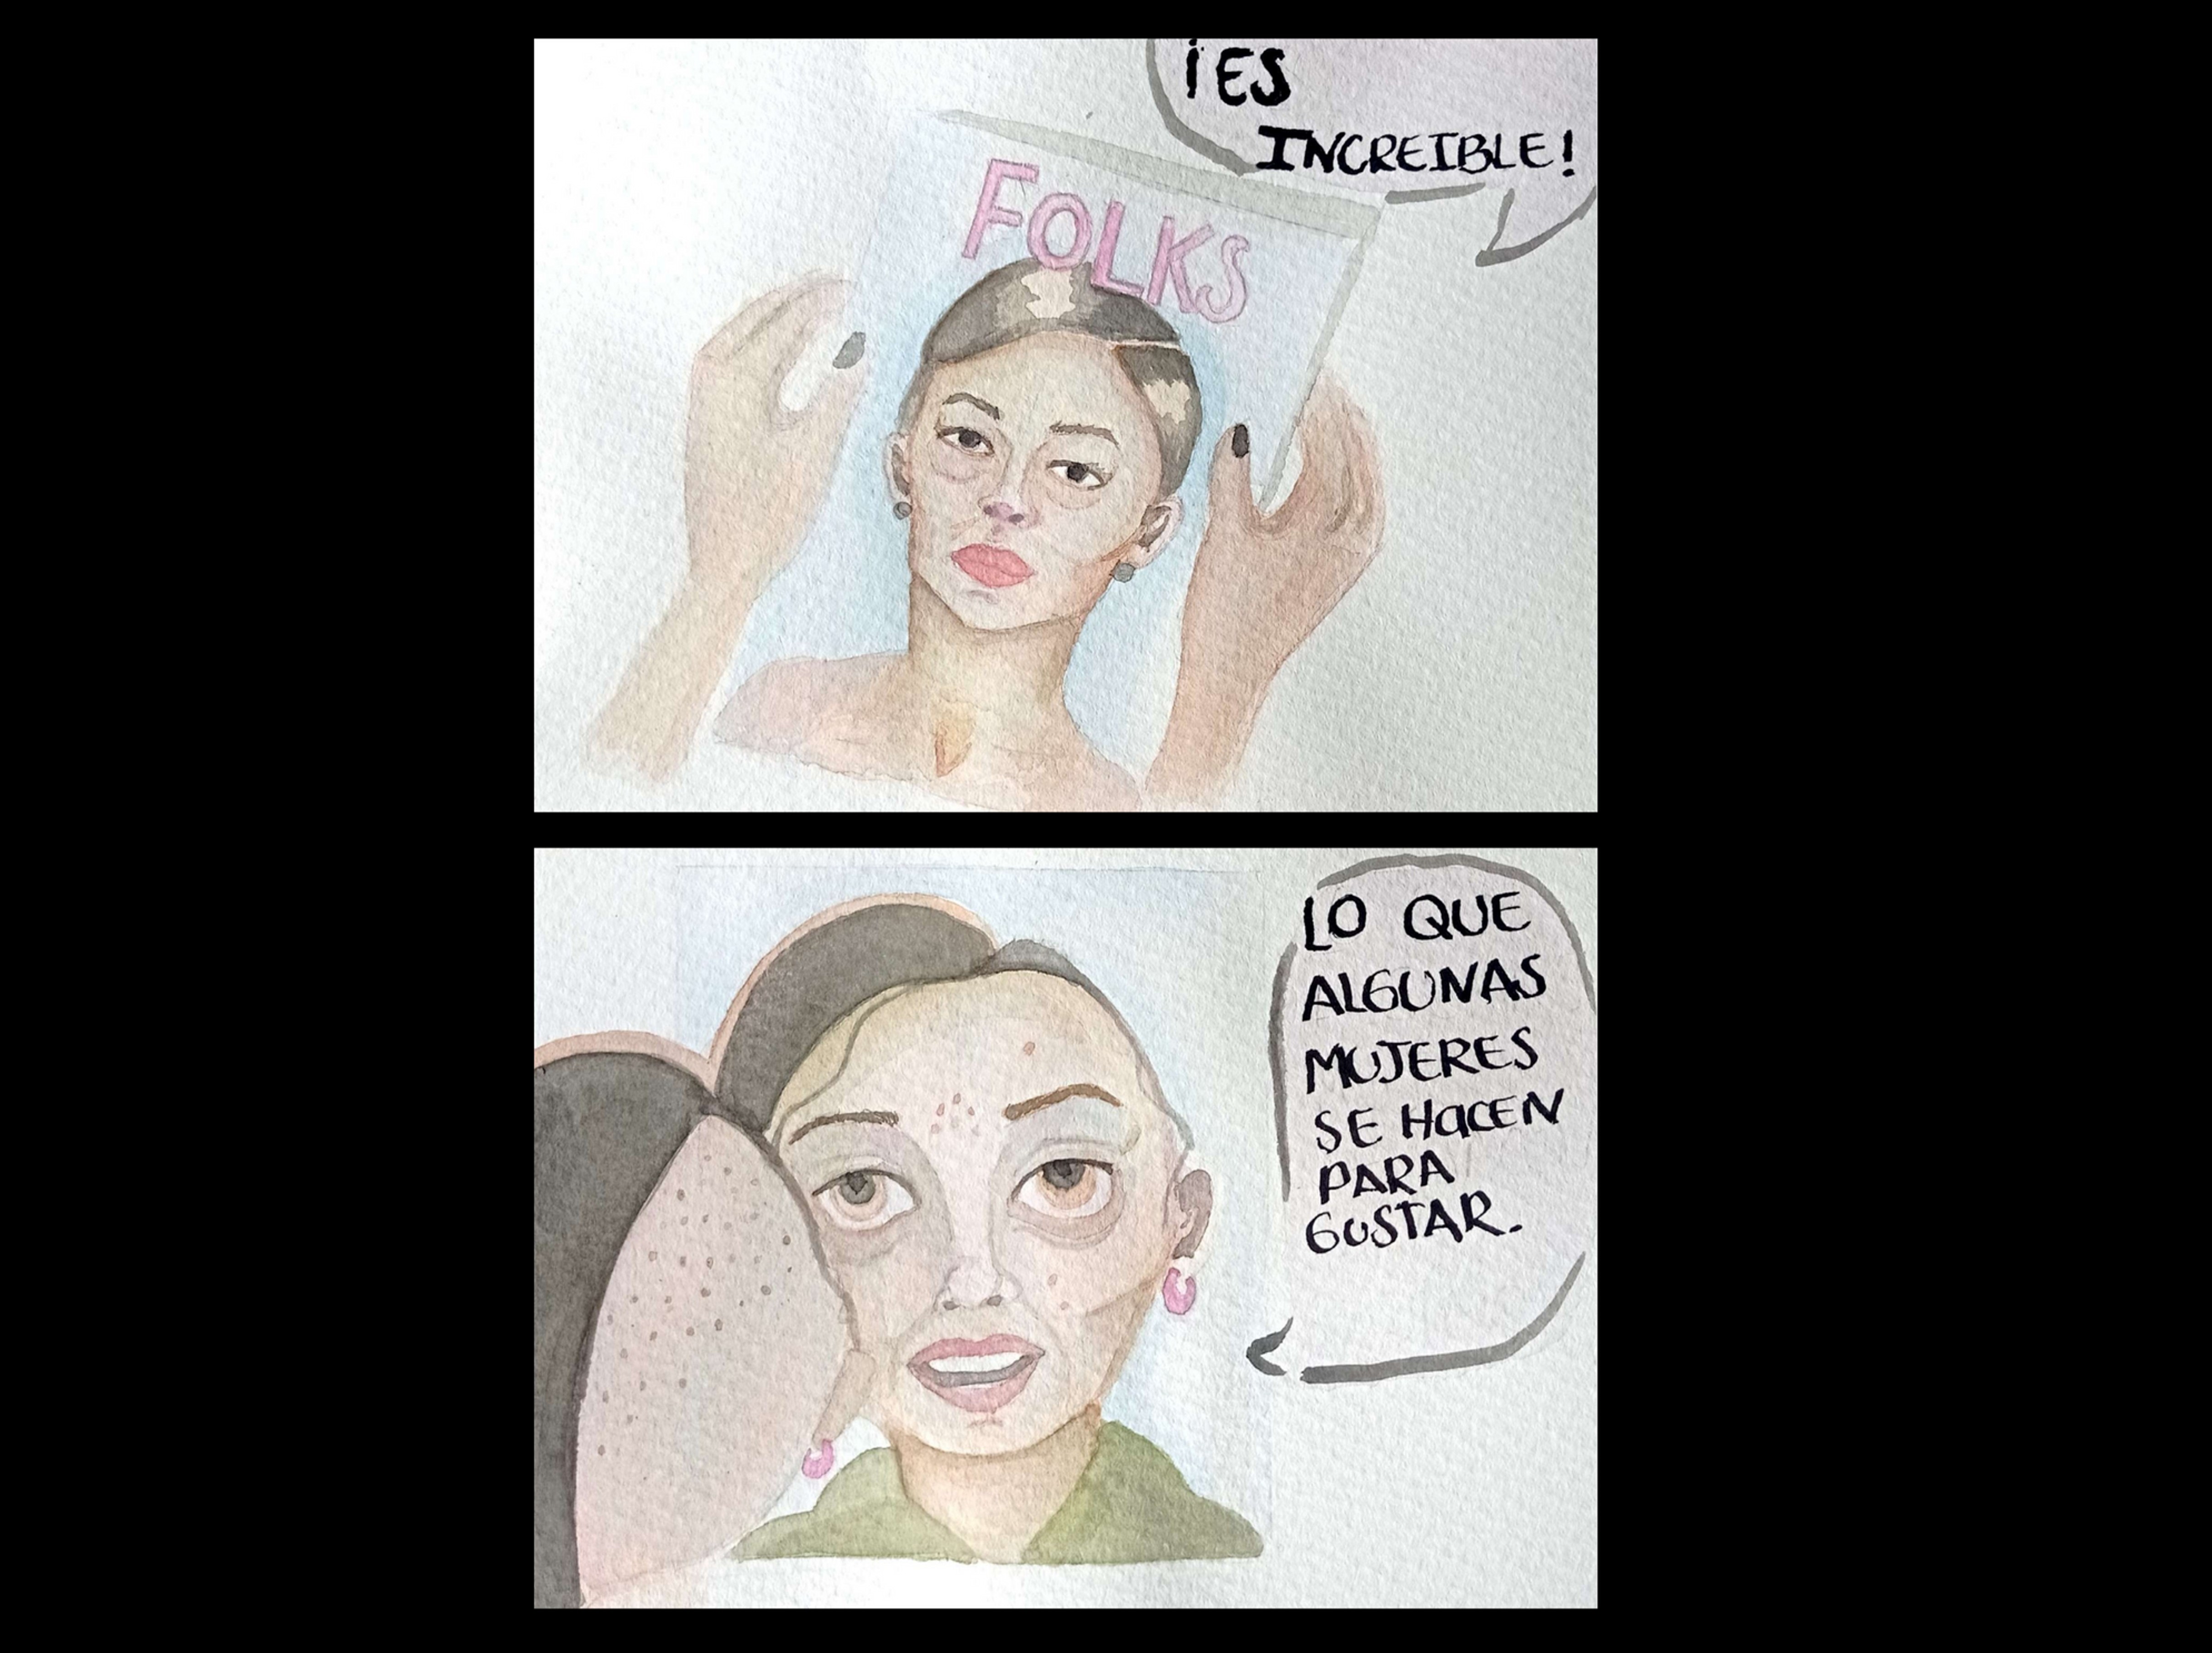 ¡ES
INCREIBLE!
FOLKS
LO QUE
ALGUNAS
MUJERES
SE HACEN
PARA
GUSTAR.